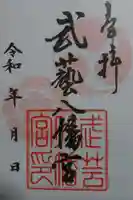 奉拝
武藝八幡宮
令和 年 月 日